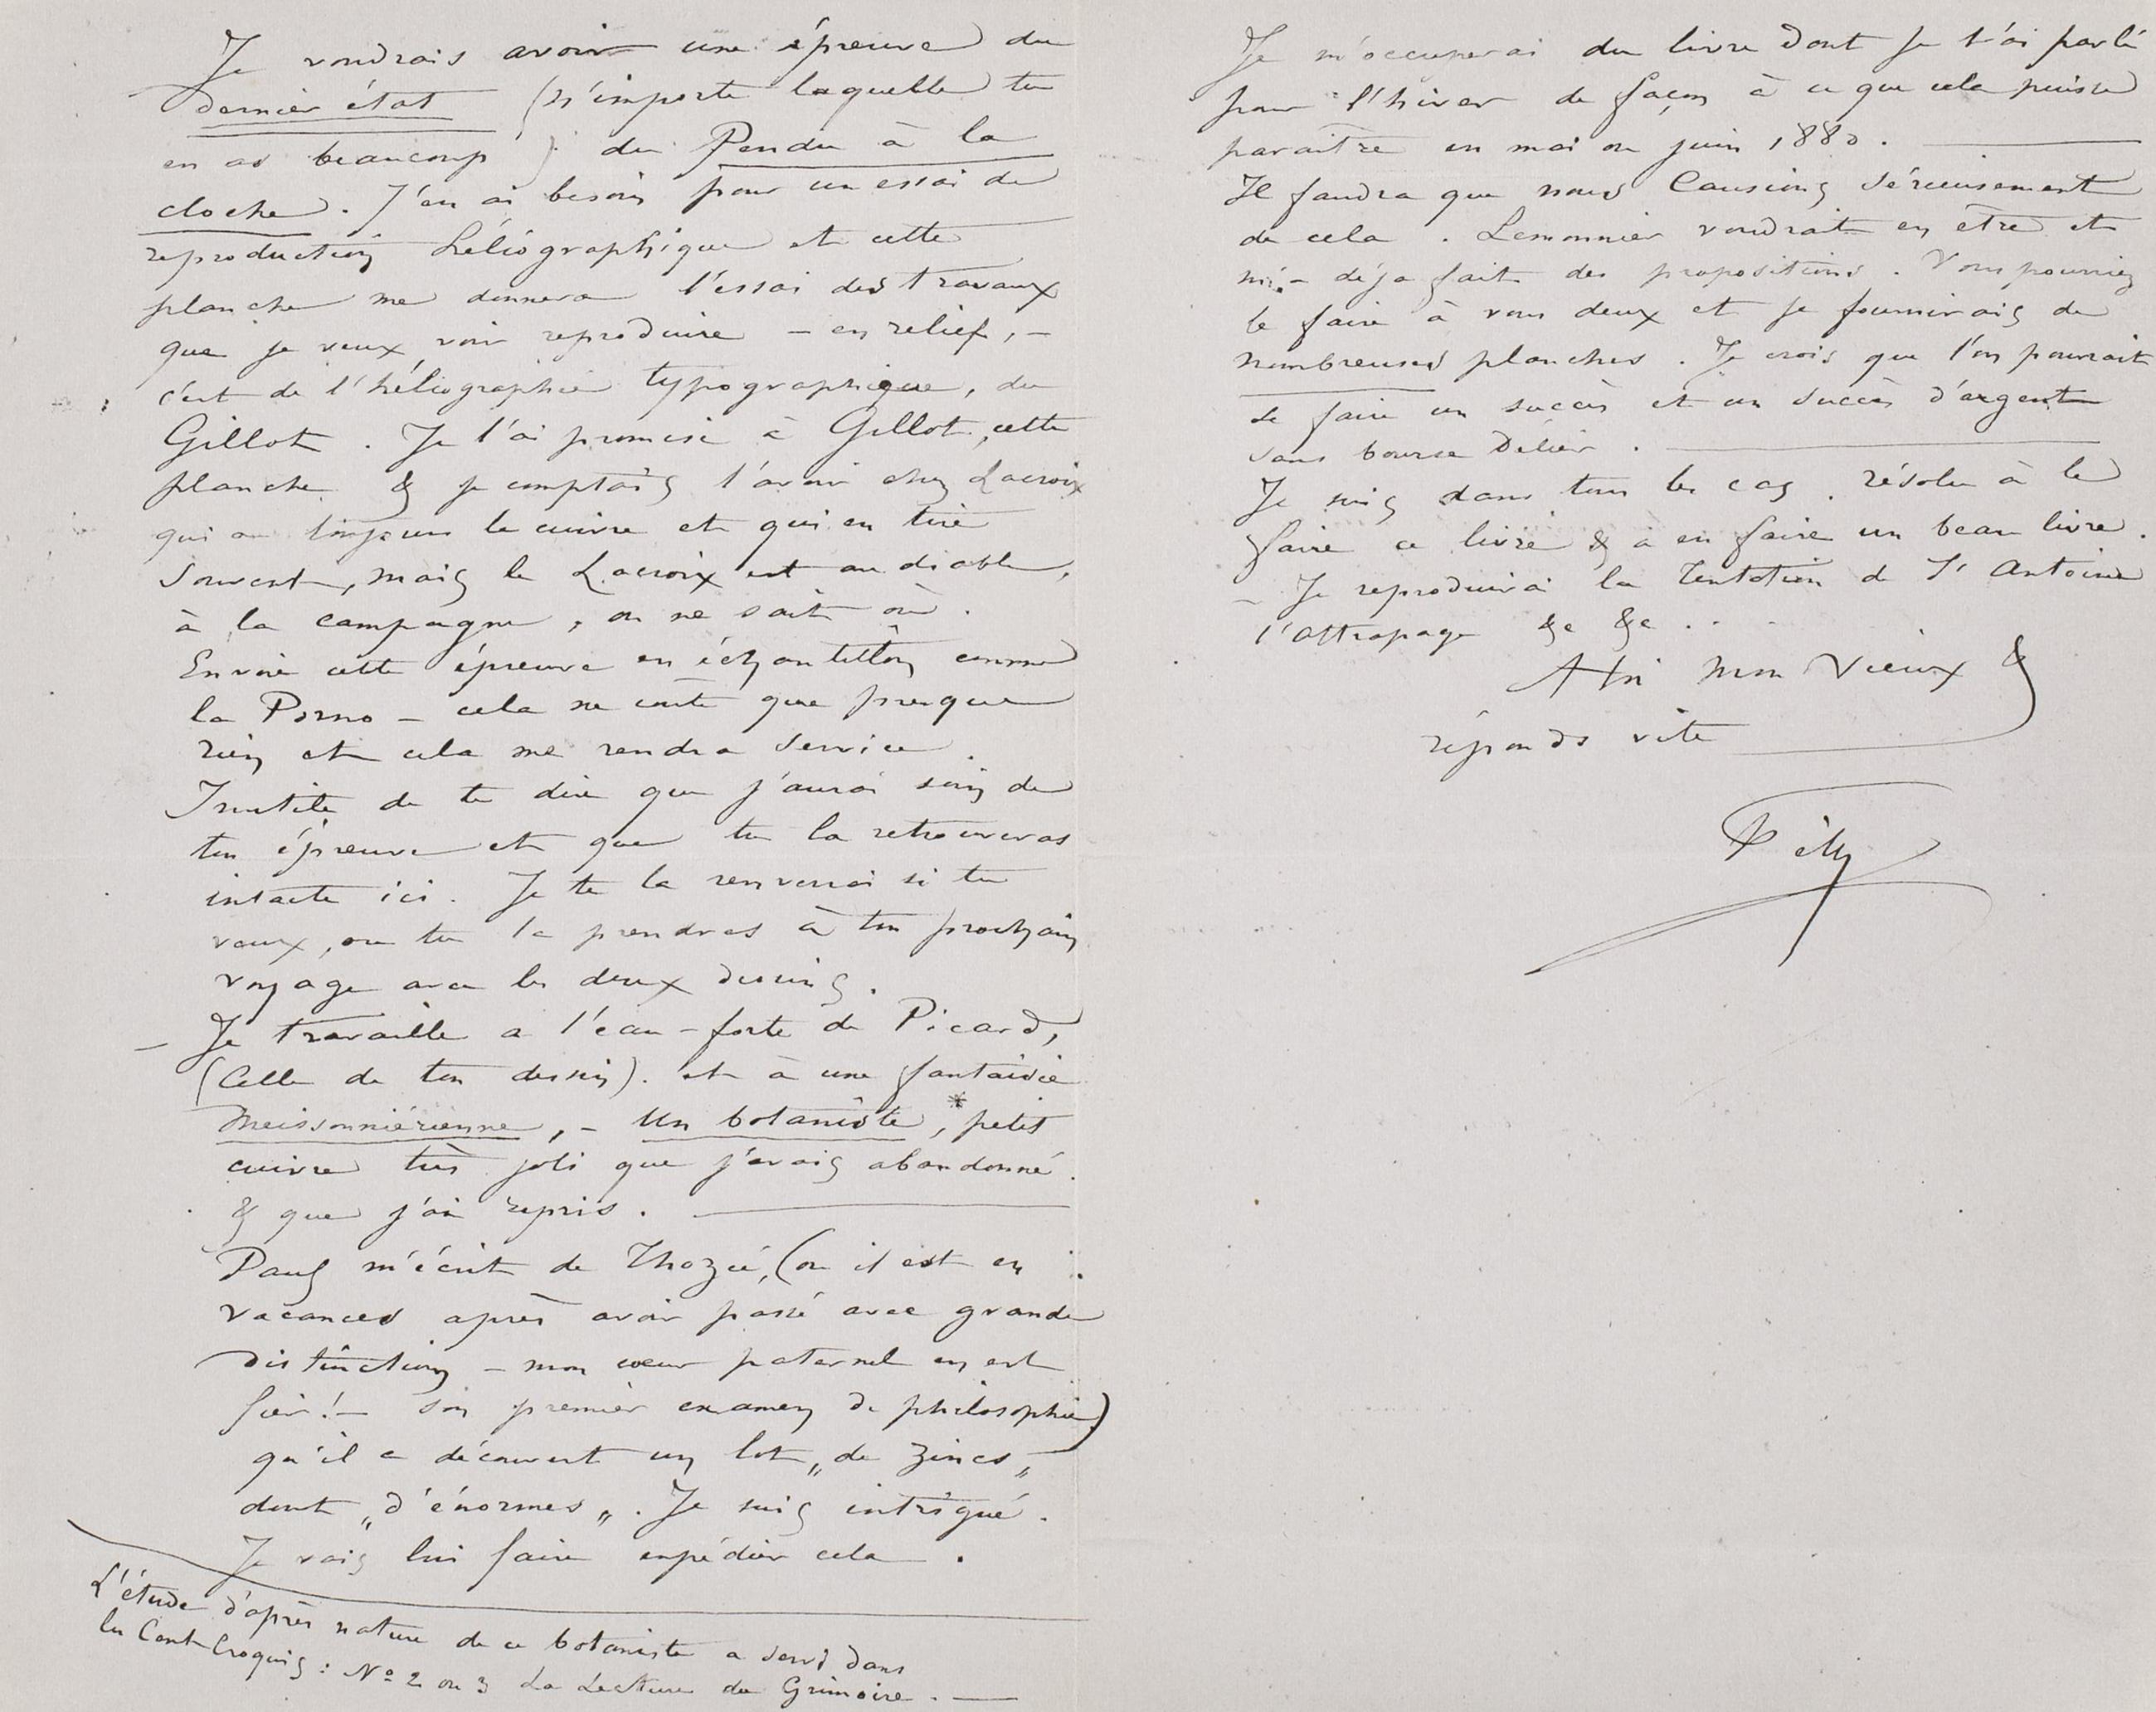 Je voudrais avoir une épreuve du
dernier état (n'importe laquelle tu
en as beaucoup) du Pendu à la
cloche. J'en ai besoin pour un essai de
reproduction héliographique et cette
planche me donnera l'essai des travaux
que je veux voir reproduire – en relief, –
c'est de l'héliographie typographique, du
Gillot. Je l'ai promise à Gillot, cette
planche & je comptais l'avoir chez Lacroix
qui a toujours le cuivre et qui en tire
souvent, mais le Lacroix est au diable,
à la campagne, on ne sait où.
Envoie cette épreuve en échantillon comme
la Porno – cela ne coûte que presque
rien et cela me rendra service.
Inutile de te dire que j'aurai soin de
ton épreuve et que tu la retrouveras
intacte ici. Je te la renverrai si tu
veux, ou tu la prendras à ton prochain
voyage avec les deux dessins.
– Je travaille a l'eau-forte de Picard,
(Celle de ton dessin). et à une fantaisie
meissonniérienne, – Un botaniste*, petit
cuivre très joli que j'avais abandonné.
& que j'ai repris.
Paul m'écrit de Thozée, (ou il est en
vacances après avoir passé avec grande
distinction – mon cœur paternel en est
fier! – son premier examen de philosophie)
qu'il a découvert un lot „de zincs„
dont „d'énormes„. Je suis intrigué.
Je vais lui faire expédier cela.
L'étude d'après nature de ce botaniste a servi dans
les Cent Croquis : No 2 ou 3 La Lecture du Grimoire. —
Je m'occuperai du livre dont je t'ai parlé
pour l'hiver de façon à ce que cela puisse
paraître en mai ou juin 1880.
Il faudra que nous Causions sérieusement
de cela. Lemonnier voudrait en être et
m'a déja fait des propositions. Vous pourriez
le faire à vous deux et je fournirais de
nombreuses planches. Je crois que l'on pourrait
se faire un succès et un succès d'argent
sans bourse délier.
Je suis dans tous les cas. résolu à le
faire ce livre & à en faire un beau livre.
– Je reproduirai la Tentation de St Antoine
l'Attrapage &c &c . .
A toi mon Vieux &
réponds vite
Fély